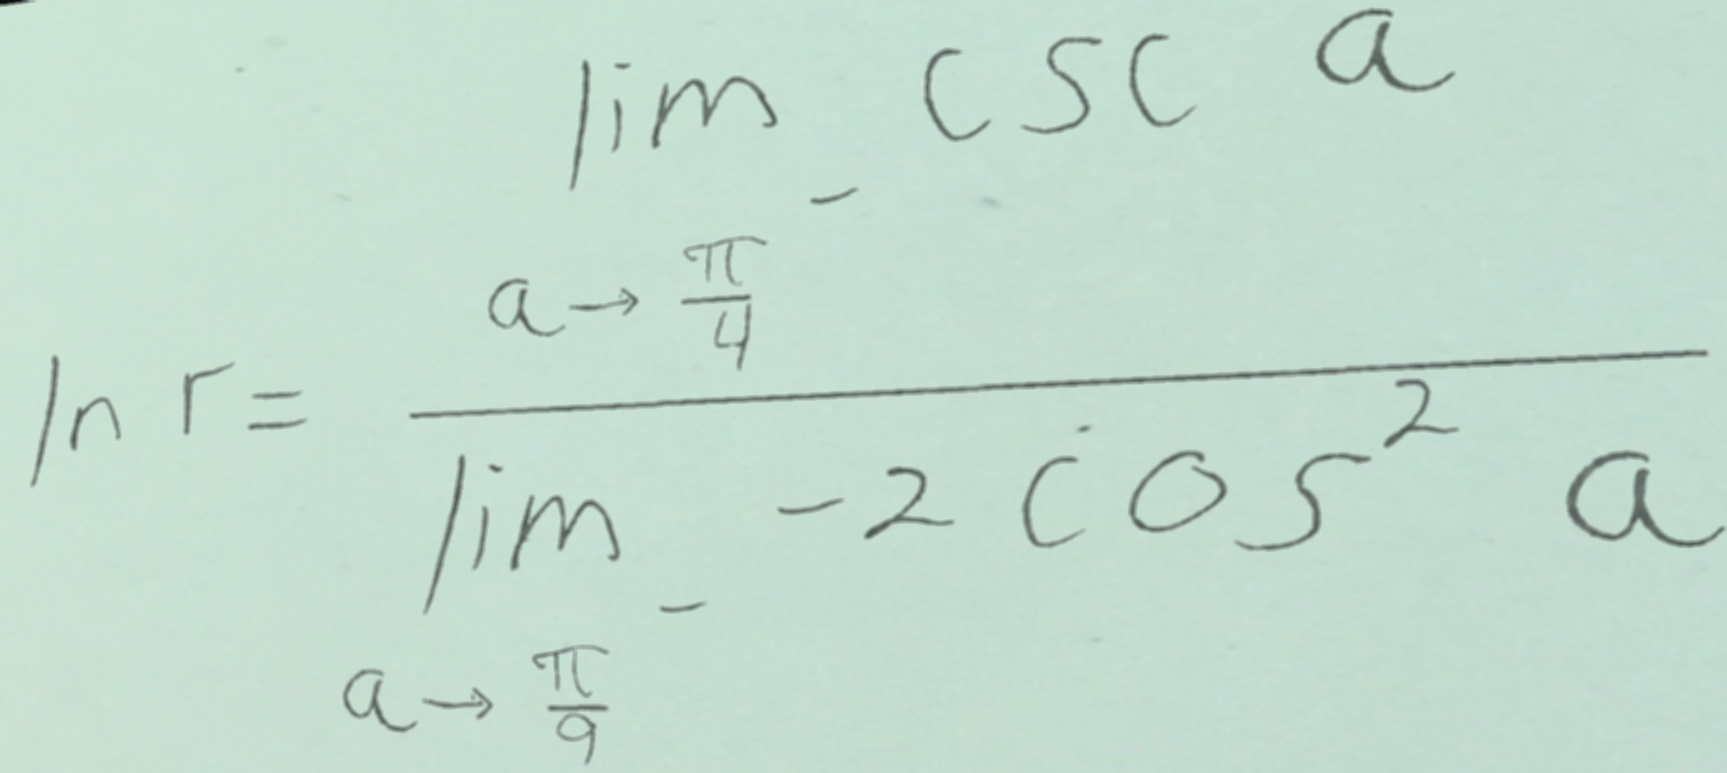 ln r = \frac{\lim_{a \to \frac{\pi}{4}^-} \csc a}{\lim_{a \to \frac{\pi}{9}^-} -2 \cos^2 a}